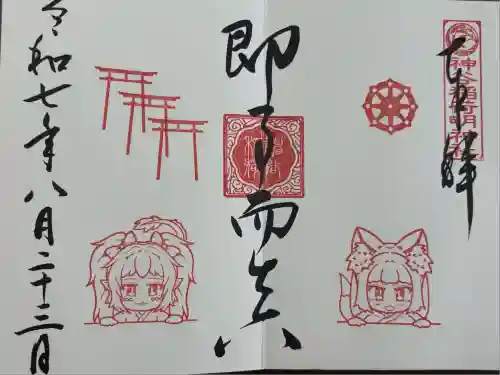 奉拝
神谷稲荷明神社
即事而真
令和七年八月二十三日